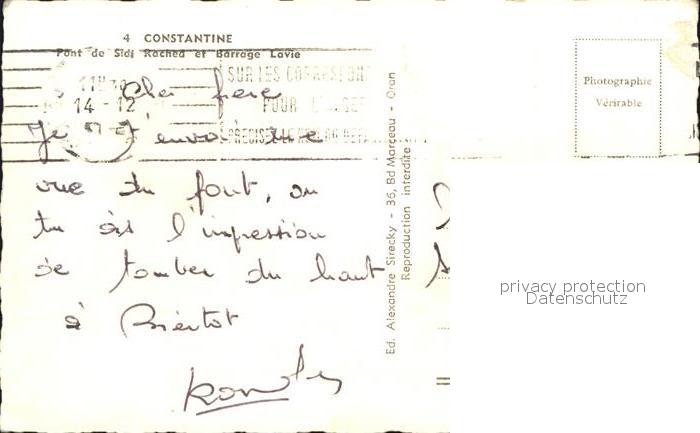 4 CONSTANTINE
Pont de Sidi Rached et Barrage Lavie
11H30
14 - 12
SUR LES CORRESPON
POUR L'ALGE
PRECISEZ
Cher frere
Je t'envoi une
vue du pont, ou
tu as l'impression
de tomber du haut
à Bientot
Ed. Alexandre Sirecky - 36, Bd Marceau - Oran
Reproduction interdite
Photographie
Véritable
privacy protection
Datenschutz